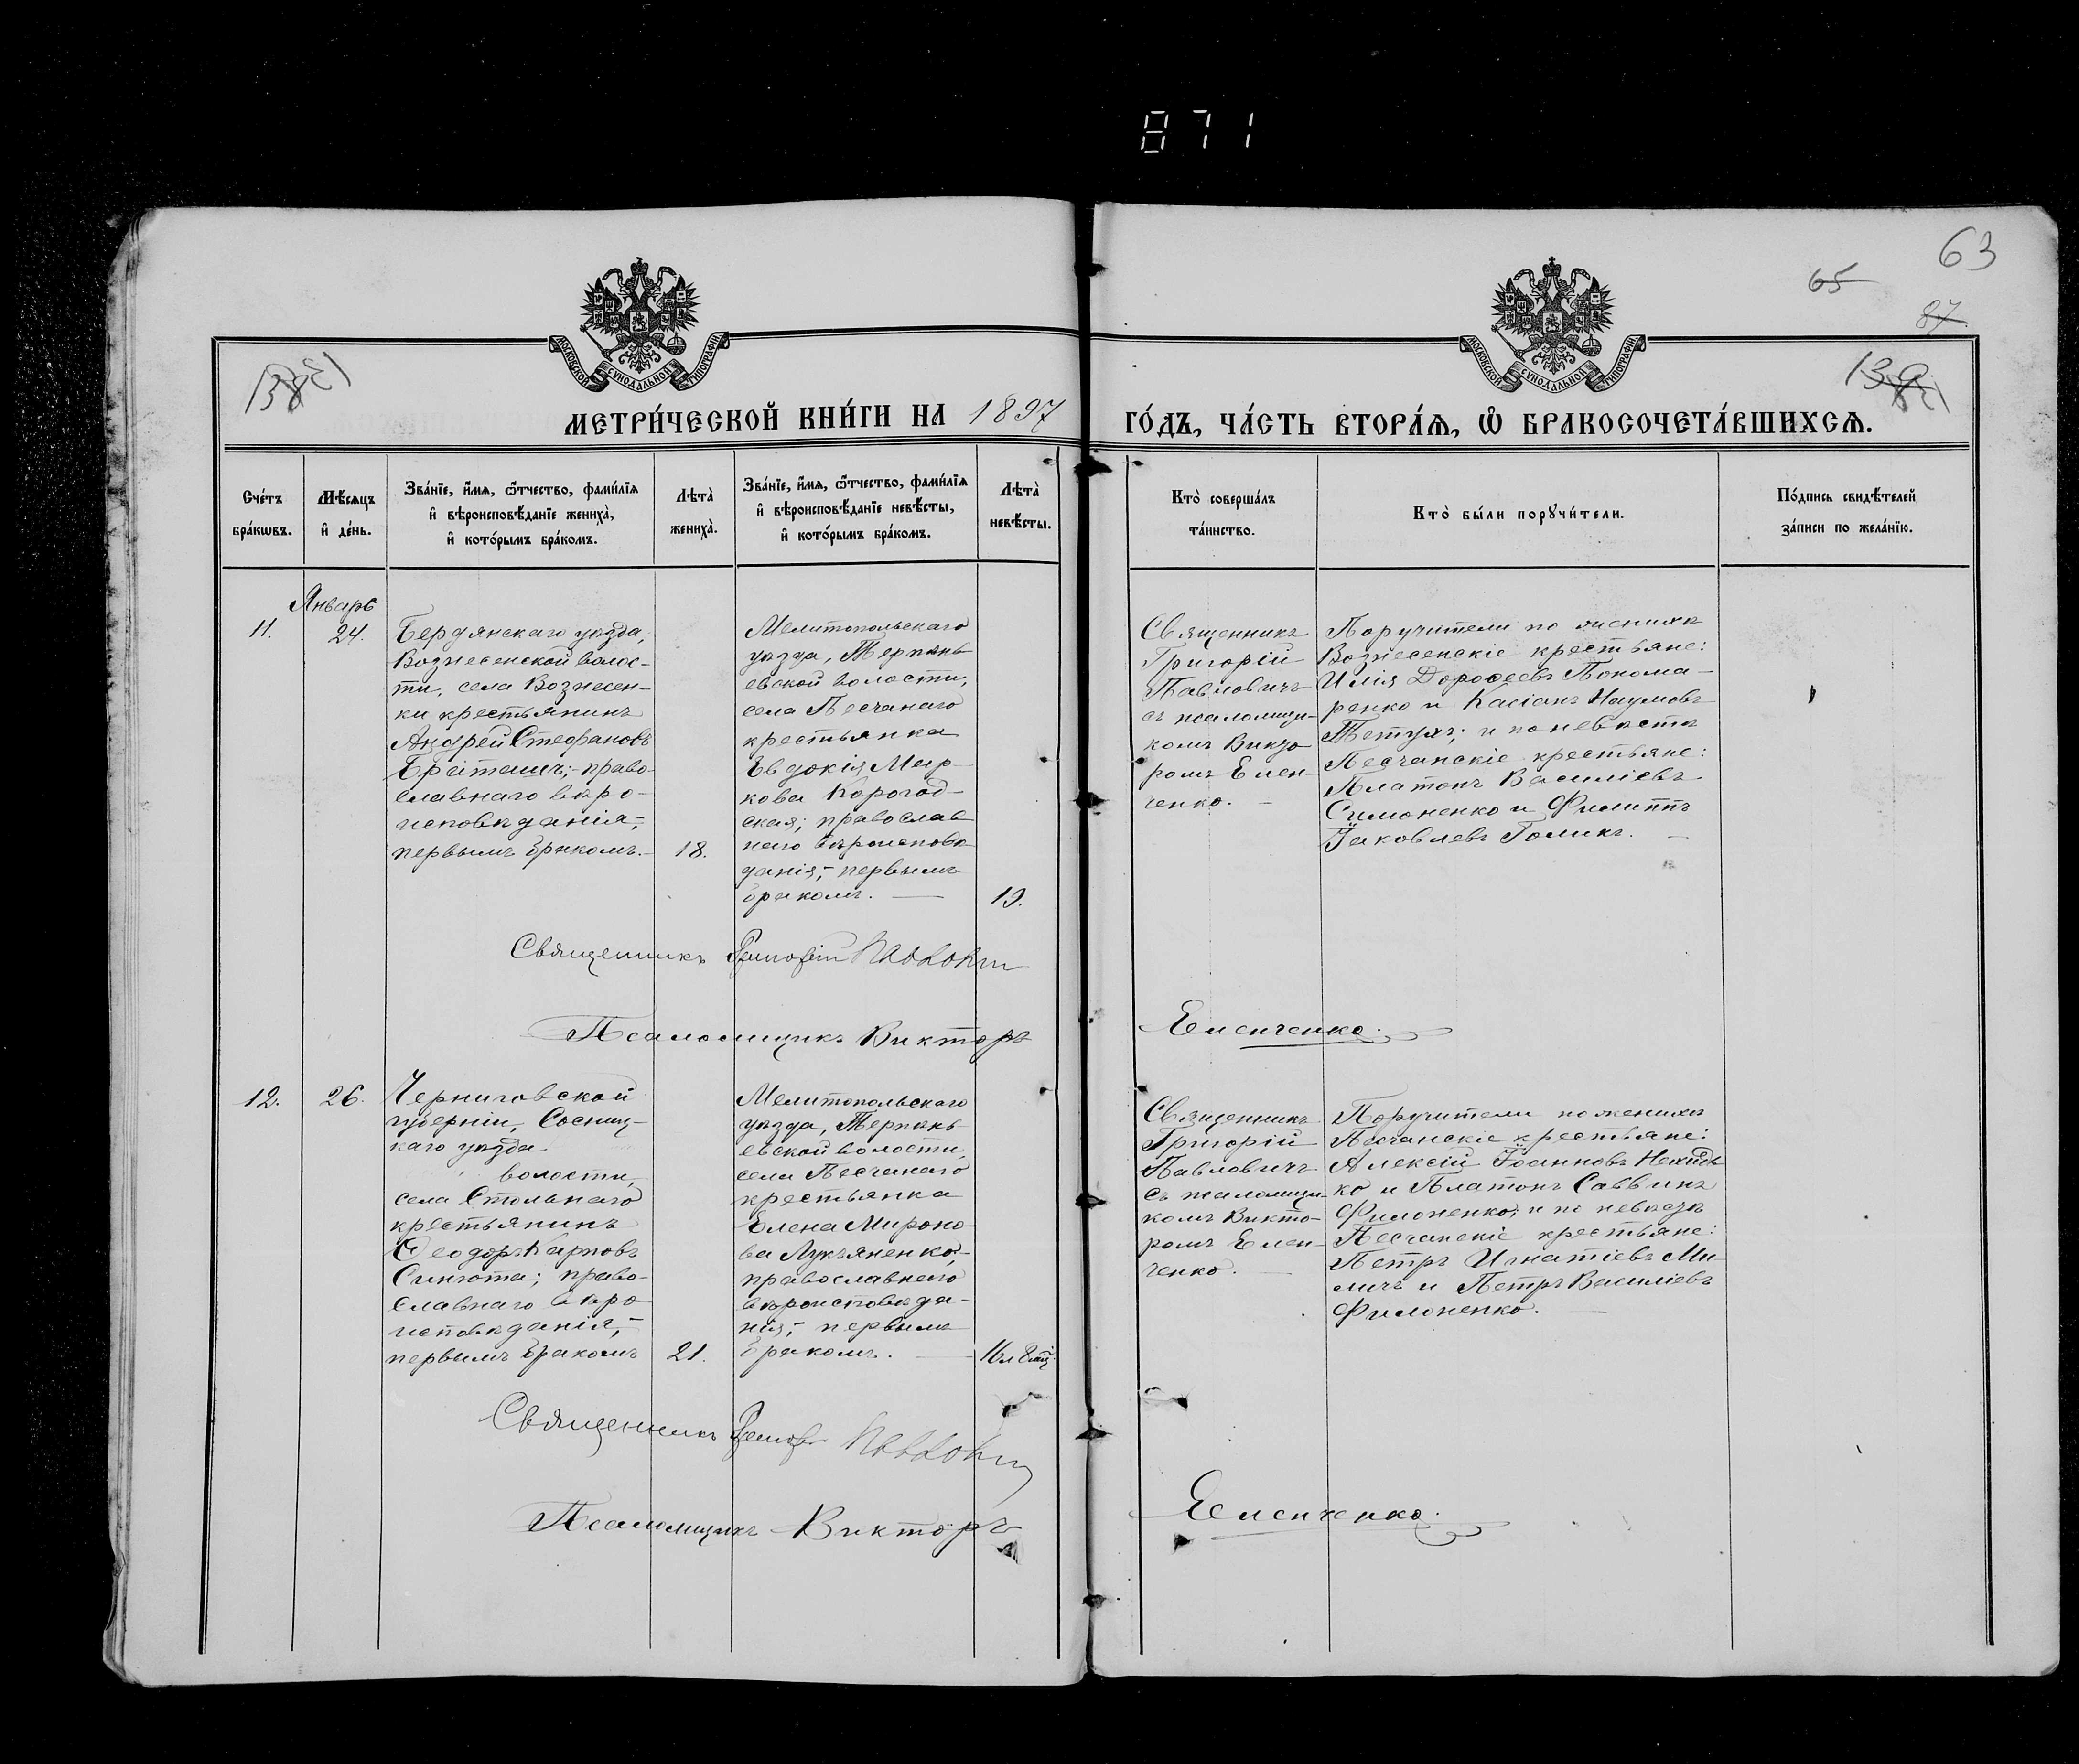 871
63
65
87
138
139
МОСКОВСКОЙ СѴНОДАЛЬНОЙ ТИПОГРАФІИ
МОСКОВСКОЙ СѴНОДАЛЬНОЙ ТИПОГРАФІИ
МЕТРИ́ЧЕСКОЙ КНИ́ГИ НА 1897 ГО́ДЪ, ЧА́СТЬ ВТОРА́Ѧ, Ѽ БРАКОСОЧЕТА́ВШИХСѦ.
Сче́тъ
бра́кѡвъ.
Мѣ́сяцъ
и҆ де́нь.
Зва́нїе, и҆́мя, ѻ҆́тчество, фами́лїя
и҆ вѣроисповѣ́данїе жениха̀,
и҆ кото́рымъ бра́комъ.
Лѣта̀
жениха̀.
Зва́нїе, и҆́мя, ѻ҆́тчество, фами́лїя
и҆ вѣроисповѣ́данїе невѣ́сты,
и҆ кото́рымъ бра́комъ.
Лѣта̀
невѣ́сты.
Кто̀ соверша́лъ
та́инство.
Кто̀ бы́ли порꙋчи́тели.
По́дпись свидѣ́телей
за́писи по жела́нїю.
Январь
11.
24.
Бердянскаго уѣзда,
Вознесенской волос-
ти, села Вознесен-
ки крестьянинъ
Андрей Стефановъ
право-
славнаго вѣро-
исповѣданія,
первымъ бракомъ.
18.
Мелитопольскаго
уѣзда, Терпѣнь
евской волости,
села Песчанаго
крестьянка
Евдокія Мар-
кова Корогод-
ская; православ
наго вѣроисповѣ
данія,- первымъ
бракомъ.
19.
Священникъ
Григорій
Павловичъ
съ псаломщи-
комъ Викто
ромъ Емен-
ченко.
Поручители по женихѣ
Вознесенскіе крестьяне:
Илія Дороѳеевъ Понома-
ренко и Касіанъ Наумовъ
Петухъ; и по невѣстѣ
Песчанскіе крестьяне:
Платонъ Василіевъ
Симоненко и Филиппъ
Іаковлевъ Голикъ.
Священникъ Григорій Павловичъ
Псаломщикъ Викторъ Еменченко.
12.
26.
Черниговской
губерніи, Сосниц-
каго уѣзда
волости,
села Стольнаго
крестьянинъ
Ѳеодоръ Карповъ
Сингота; право-
славнаго вѣро
исповѣданія,-
первымъ бракомъ
21.
Мелитопольскаго
уѣзда, Терпѣнь
евской волости,
села Песчанаго
крестьянка
Елена Мироно
ва Лукьяненко,-
православнаго
вѣроисповѣда-
нія,- первымъ
бракомъ.
16 л 8 мц.
Священникъ
Григорій
Павловичъ
съ псаломщи-
комъ Викто-
ромъ Емен-
ченко.
Поручители по женихѣ
Песчанскіе крестьяне:
Алексій Іоанновъ
ко и Платонъ Саввинъ
Филоненко; и по невѣстѣ
Песчанскіе крестьяне:
Петръ Игнатіевъ Ми-
личъ и Петръ Василіевъ
Филоненко.
Священникъ Григор. Павловичъ
Псаломщикъ Викторъ Еменченко.